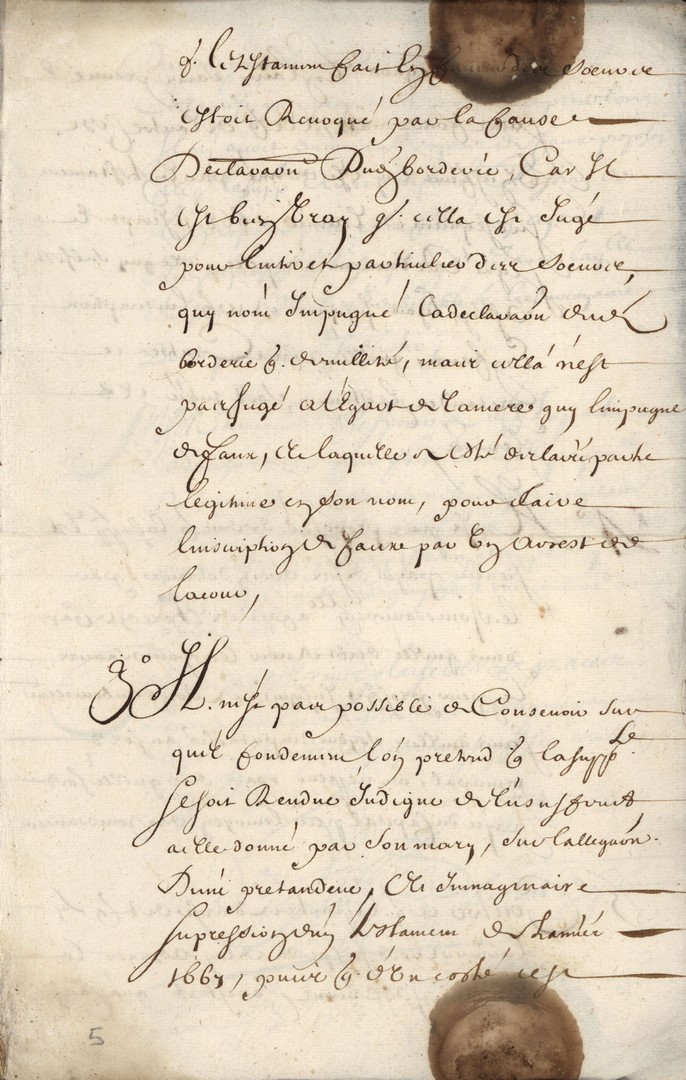 q. le testament fait en faveur des soeurs
estoit Revoqué par la fausse
Declara͞on Du͞e borderie, Car Il
est bien Vray q. cella est Jugé
pour linterest particulier des soeurs,
quy nont Impugné la declara͞on dud.
borderie q. de nullité, mais cella n'est
pas Jugé a l'Esgart de la mere quy limpugne
de faux, et laquelle a esté declarée partie
legitime en son nom, pour faire
linscription de faux par Un arrest de
la cour,
3° Il. n'est pas possible de Concevoir sur
quel fondement l'on pretend q. la supp.te
se soit Rendue Indigne de l'usufruit
a elle donné par son mary, sur lallega͞on.
D'une pretandue, Et Immaginaire
supression d'un testament de l'année
1667, puis q. d'Un costé cest
5